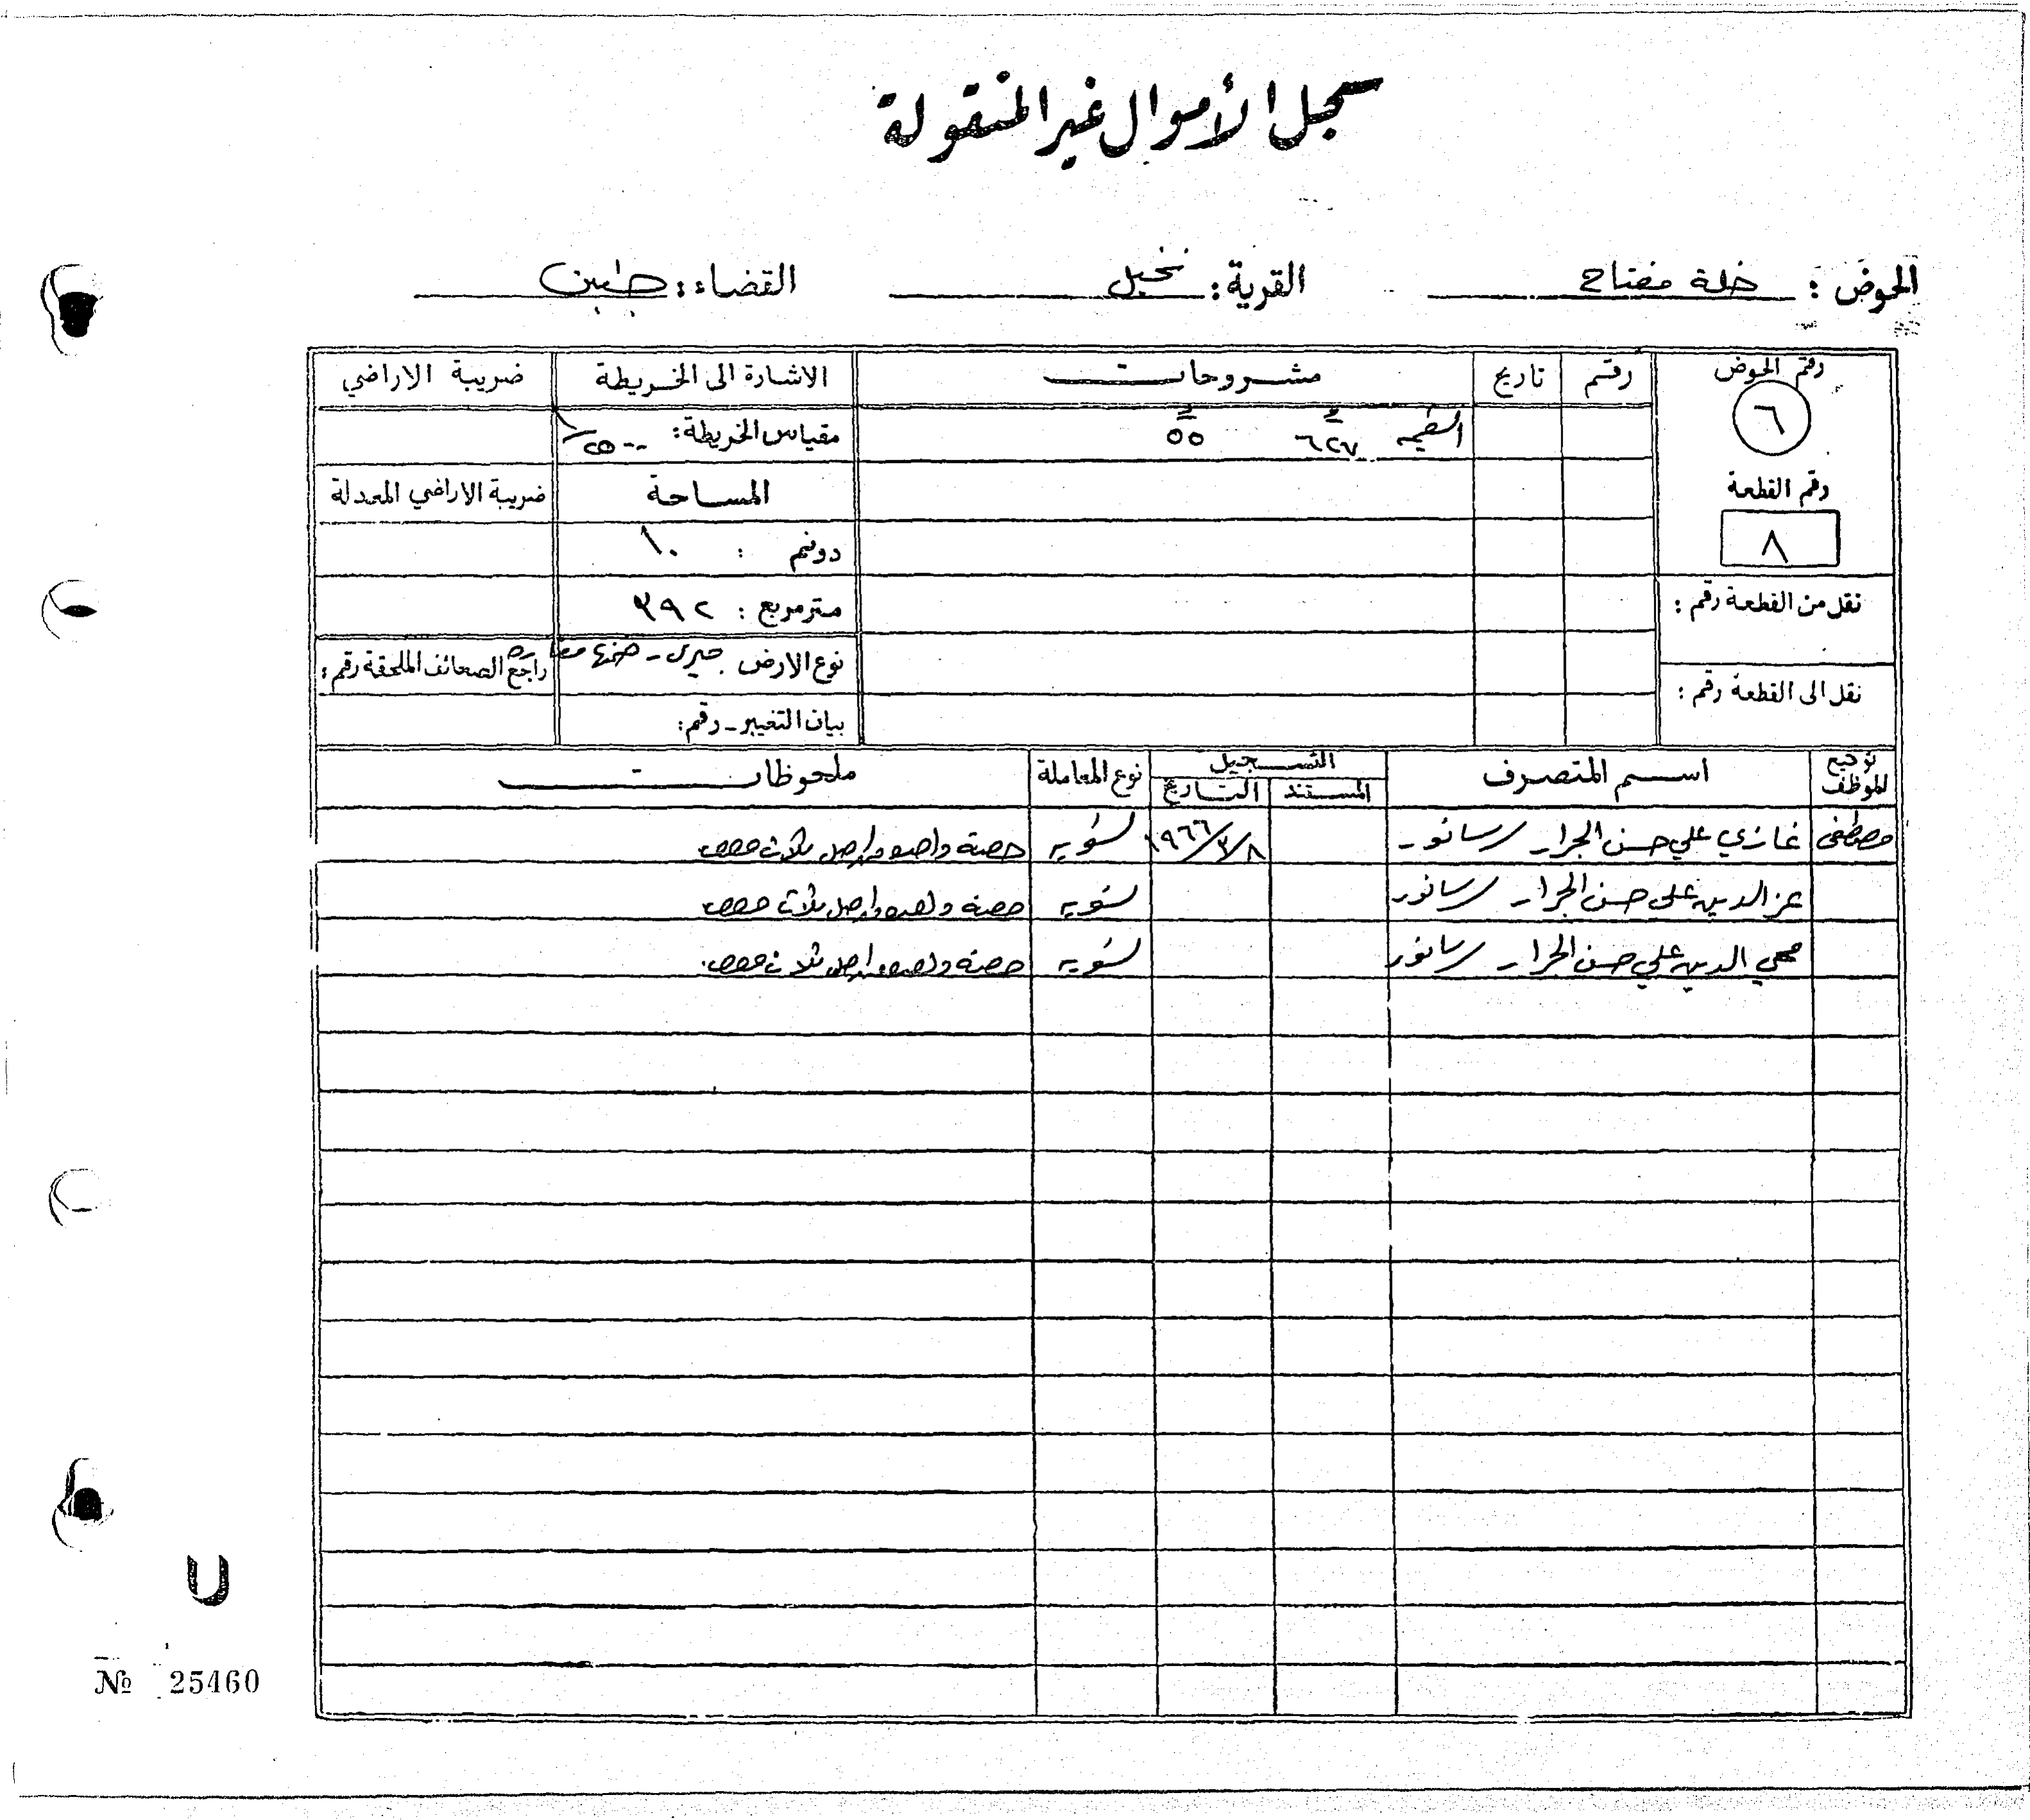 سجل الأموال غير المنقولة
الحوض : خلة مفتاح القرية : نخيل القضاء : جنين
رقم الحوض رقم تاريخ مشروحات الاشارة الى الخريطة ضريبة الاراضي
٦ القيمة ٦٢٧ ٥٥ مقياس الخريطة : ١/٢٥٠٠
رقم القطعة المساحة ضريبة الاراضي المعدلة
٨ دونم : ١٠
نقل من القطعة رقم : متر مربع : ٣٩٢
نوع الارض ميري - ضمنها مغارة راجع الصحائف الملحقة رقم :
نقل الى القطعة رقم : بيان التغيير - رقم :
توقيع الموظف اسم المتصرف التسجيل نوع المعاملة ملحوظات
المستند التاريخ
مصطفى غازي علي حسن الجرار - سانور - ١٩٦٦/٣/٨ تسويه حصة واحدة من اصل ثلاث حصص
عز الدين علي حسن الجرار - سانور تسويه حصة واحدة من اصل ثلاث حصص
محي الدين علي حسن الجرار - سانور تسويه حصة واحدة من اصل ثلاث حصص.
U
№ 25460